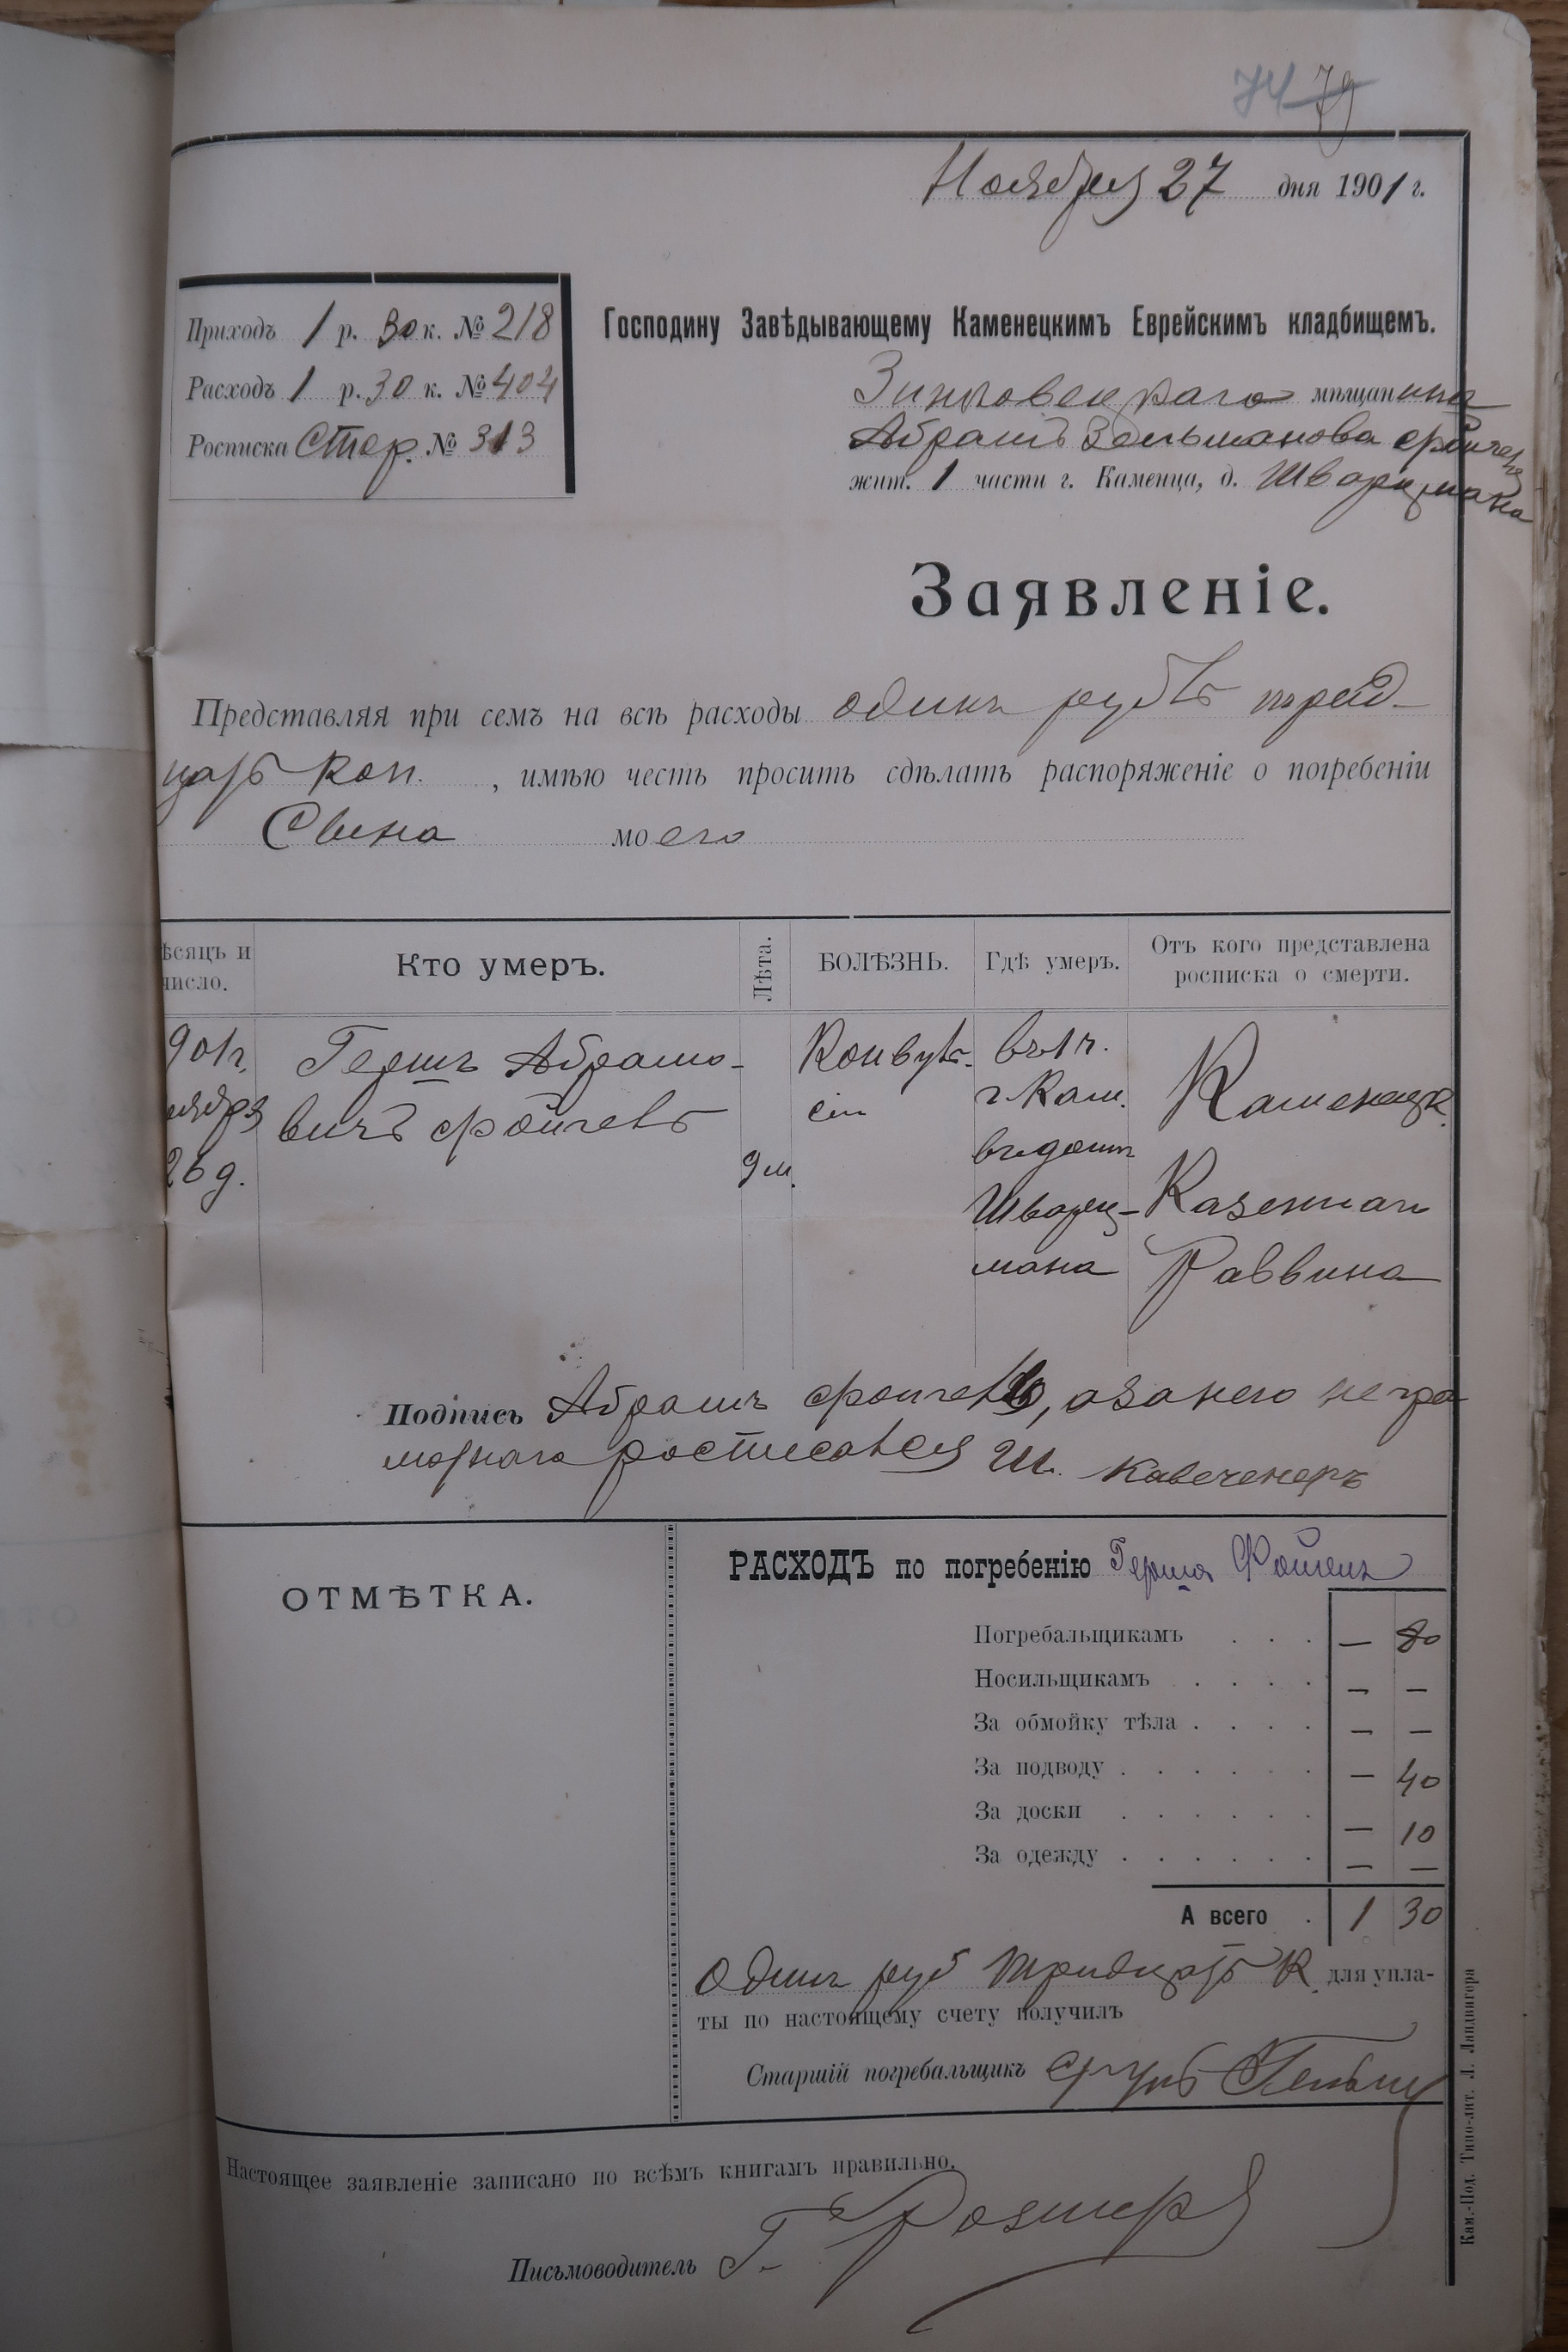 74 79
Ноября 27 дня 1901 г.
Приходъ 1 р. 30 к. № 218
Расходъ 1 р. 30 к. № 404
Росписка Стор. № 313
Господину Завѣдывающему Каменецкимъ Еврейскимъ кладбищемъ.
мѣщанина
Абрамъ Зельманова Фойгель
жит. 1 части г. Каменца, д. Шварцмана
Заявленіе.
Представляя при семъ на всѣ расходы одинъ рубль трид-
цать коп. , имѣю честь просить сдѣлать распоряженіе о погребеніи
Сына моего
ѣсяцъ и
число.
Кто умеръ.
Лѣта.
БОЛѢЗНЬ.
Гдѣ умеръ.
Отъ кого представлена
росписка о смерти.
901г.
ноября
26 д.
Гершъ Абрамо-
вичъ Фойгель
9 м.
Конвуль-
сіи
въ 1 ч.
г. Кам.
въ домѣ
Шварц-
мана
Каменецк.
Казеннаго
Раввина
Подпись Абрамъ Фойгель, а за него негра
мотнаго росписался Ш.
ОТМѢТКА.
РАСХОДЪ по погребенію Герша Фойгель
Погребальщикамъ . . . — 80
Носильщикамъ . . . . — —
За обмойку тѣла . . . . — —
За подводу . . . . . . — 40
За доски . . . . . . — 10
За одежду . . . . . . — —
А всего . 1 30
Одинъ руб тридцать к. для упла-
ты по настоящему счету получилъ
Старшій погребальщикъ
Настоящее заявленіе записано по всѣмъ книгамъ правильно.
Письмоводитель Г.
Кам.-Под. Типо-лит. Л. Ландвигера